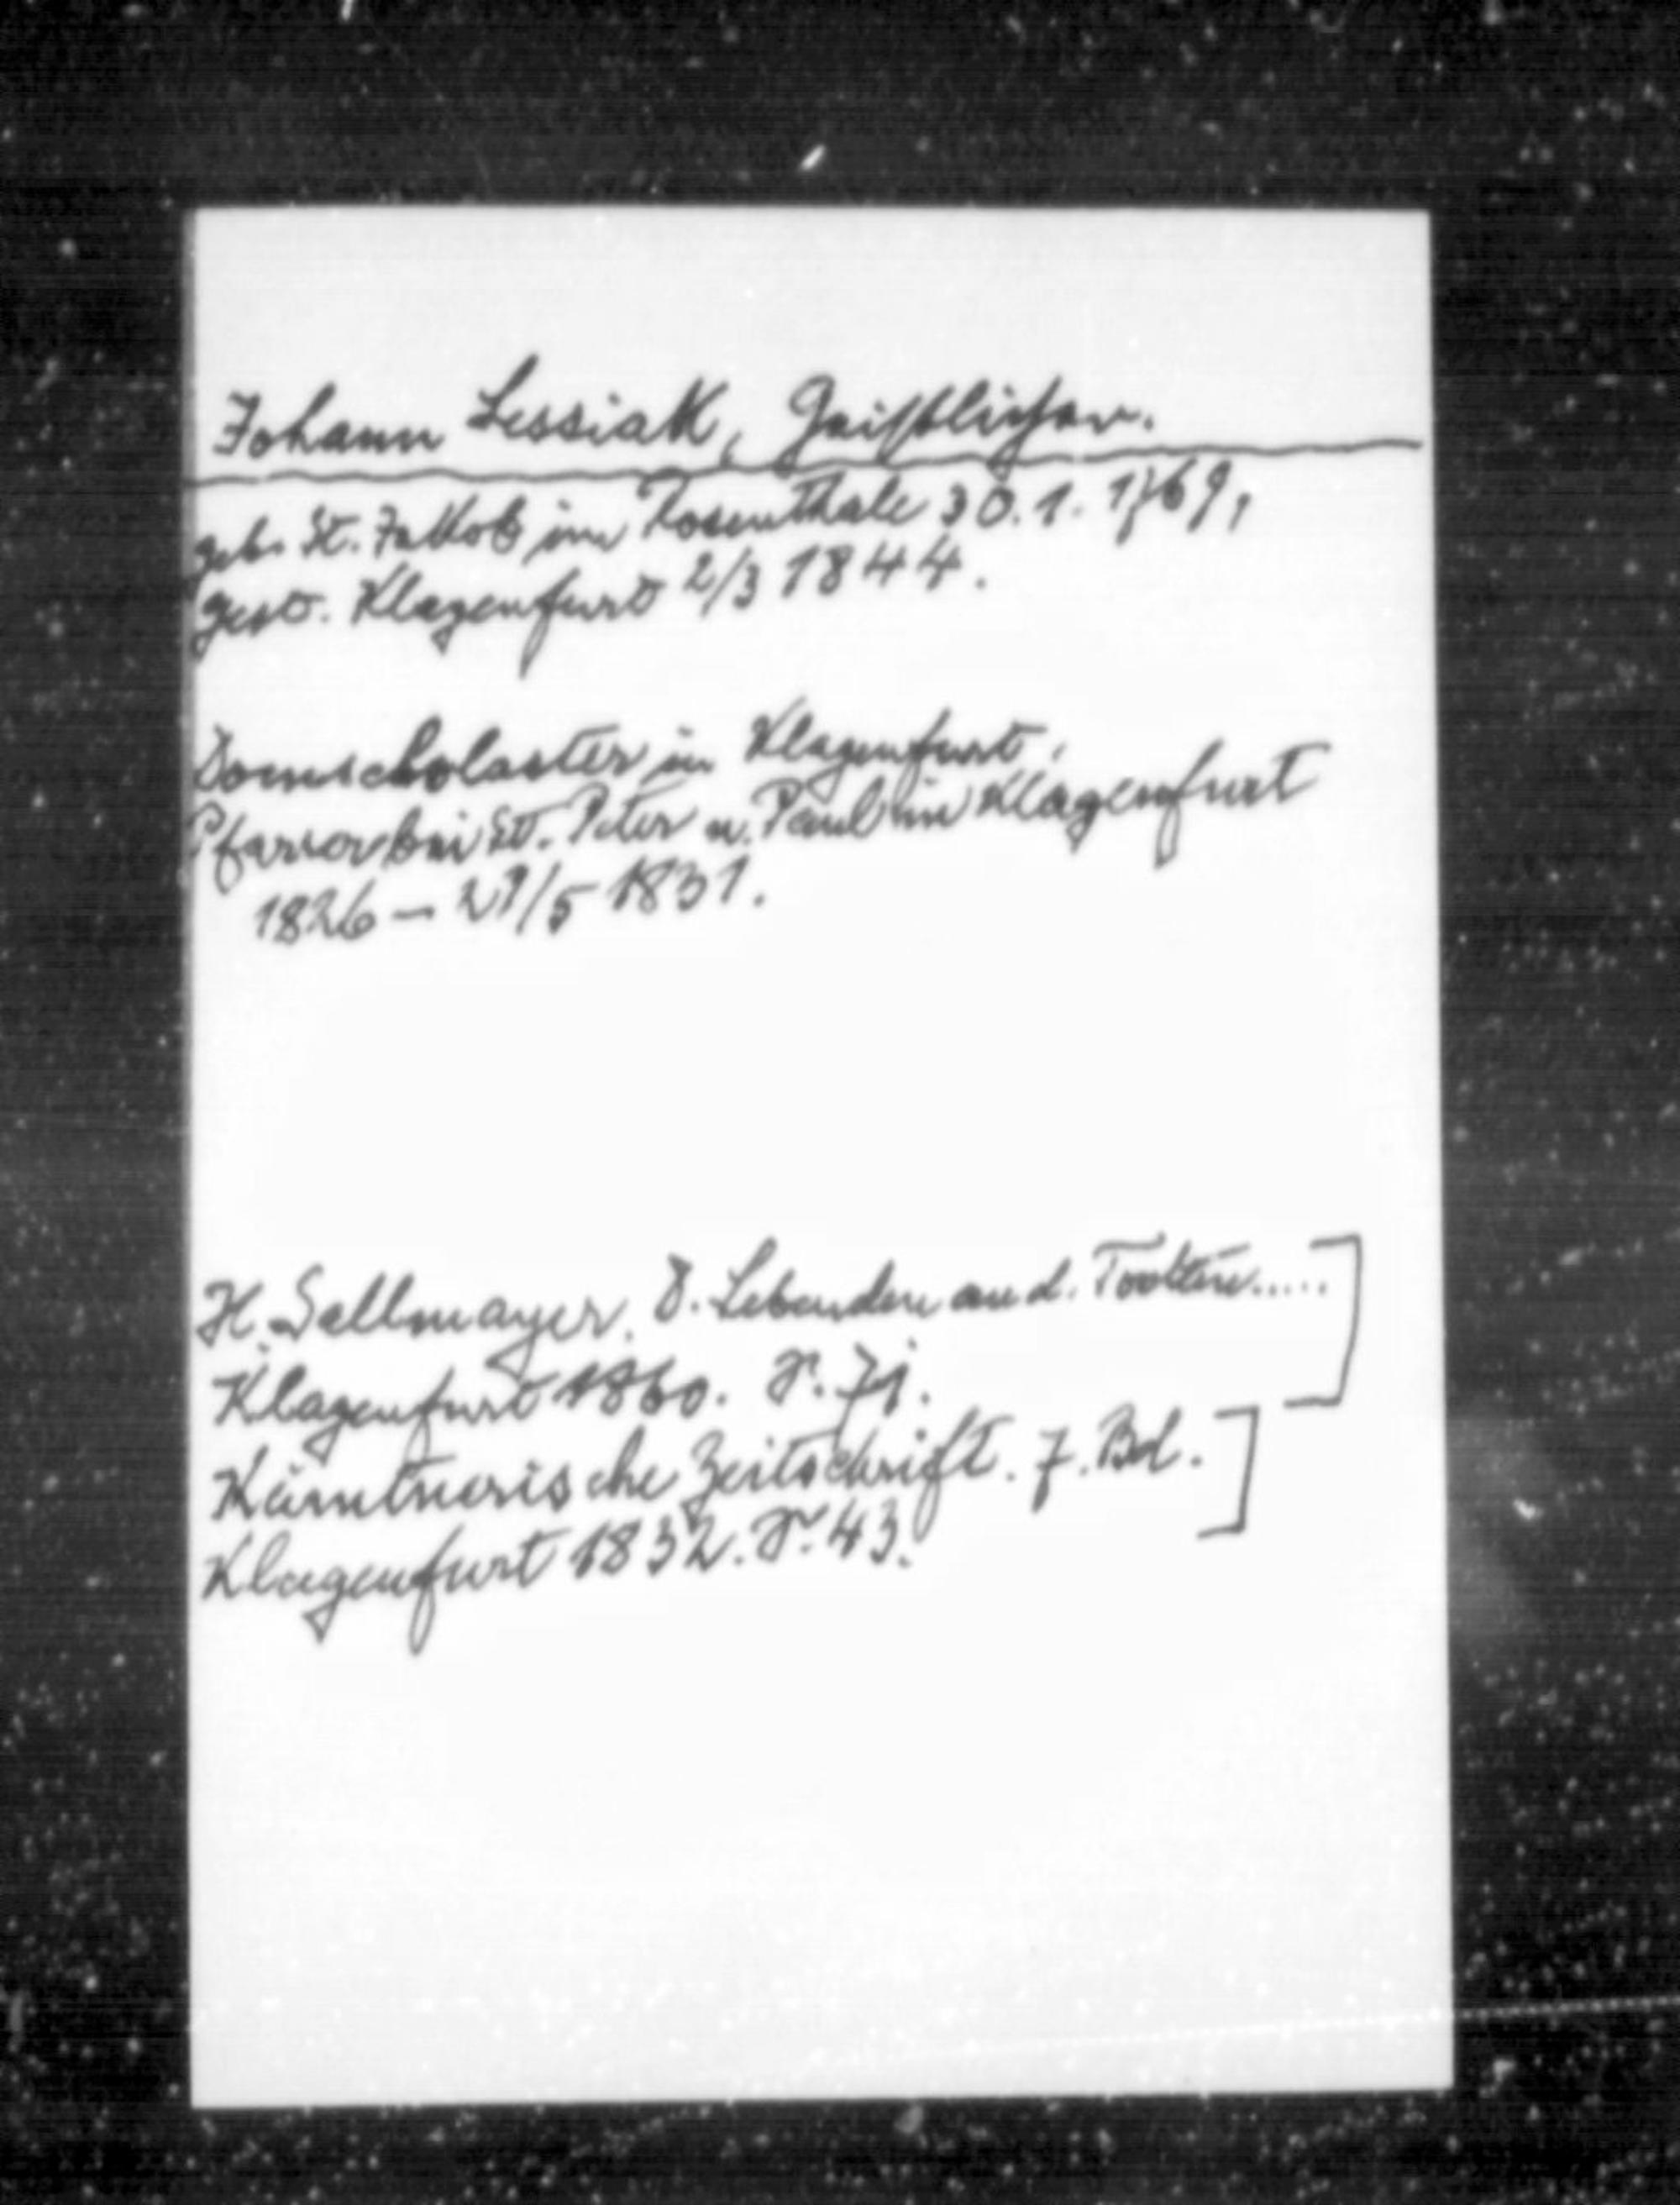 Johann Lessiak, Geistlicher.
geb. St. Jakob im Rosenthale 30. 1. 1769,
gest. Klagenfurt 2/3 1844.
Domscholaster in Klagenfurt,
Pfarrer bei St. Peter u. Paul in Klagenfurt
1826 — 29/5 1831.
H. Sallmayer. D. Lebenden an d. Todten.....]
Klagenfurt 1860. S. 71.
Kärntnerische Zeitschrift. 7. Bd.]
Klagenfurt 1832. S. 43.